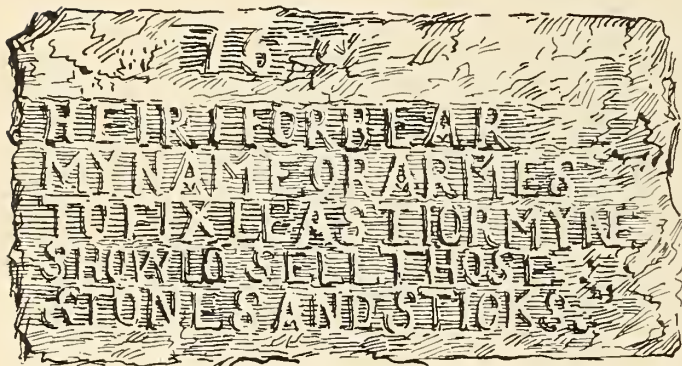 16
HEIR I FORBEAR
MY NAME OR ARMES
TO FIX LEAST I OR MYNE
SHOWLD SELL THOSE
STONES AND STICKS